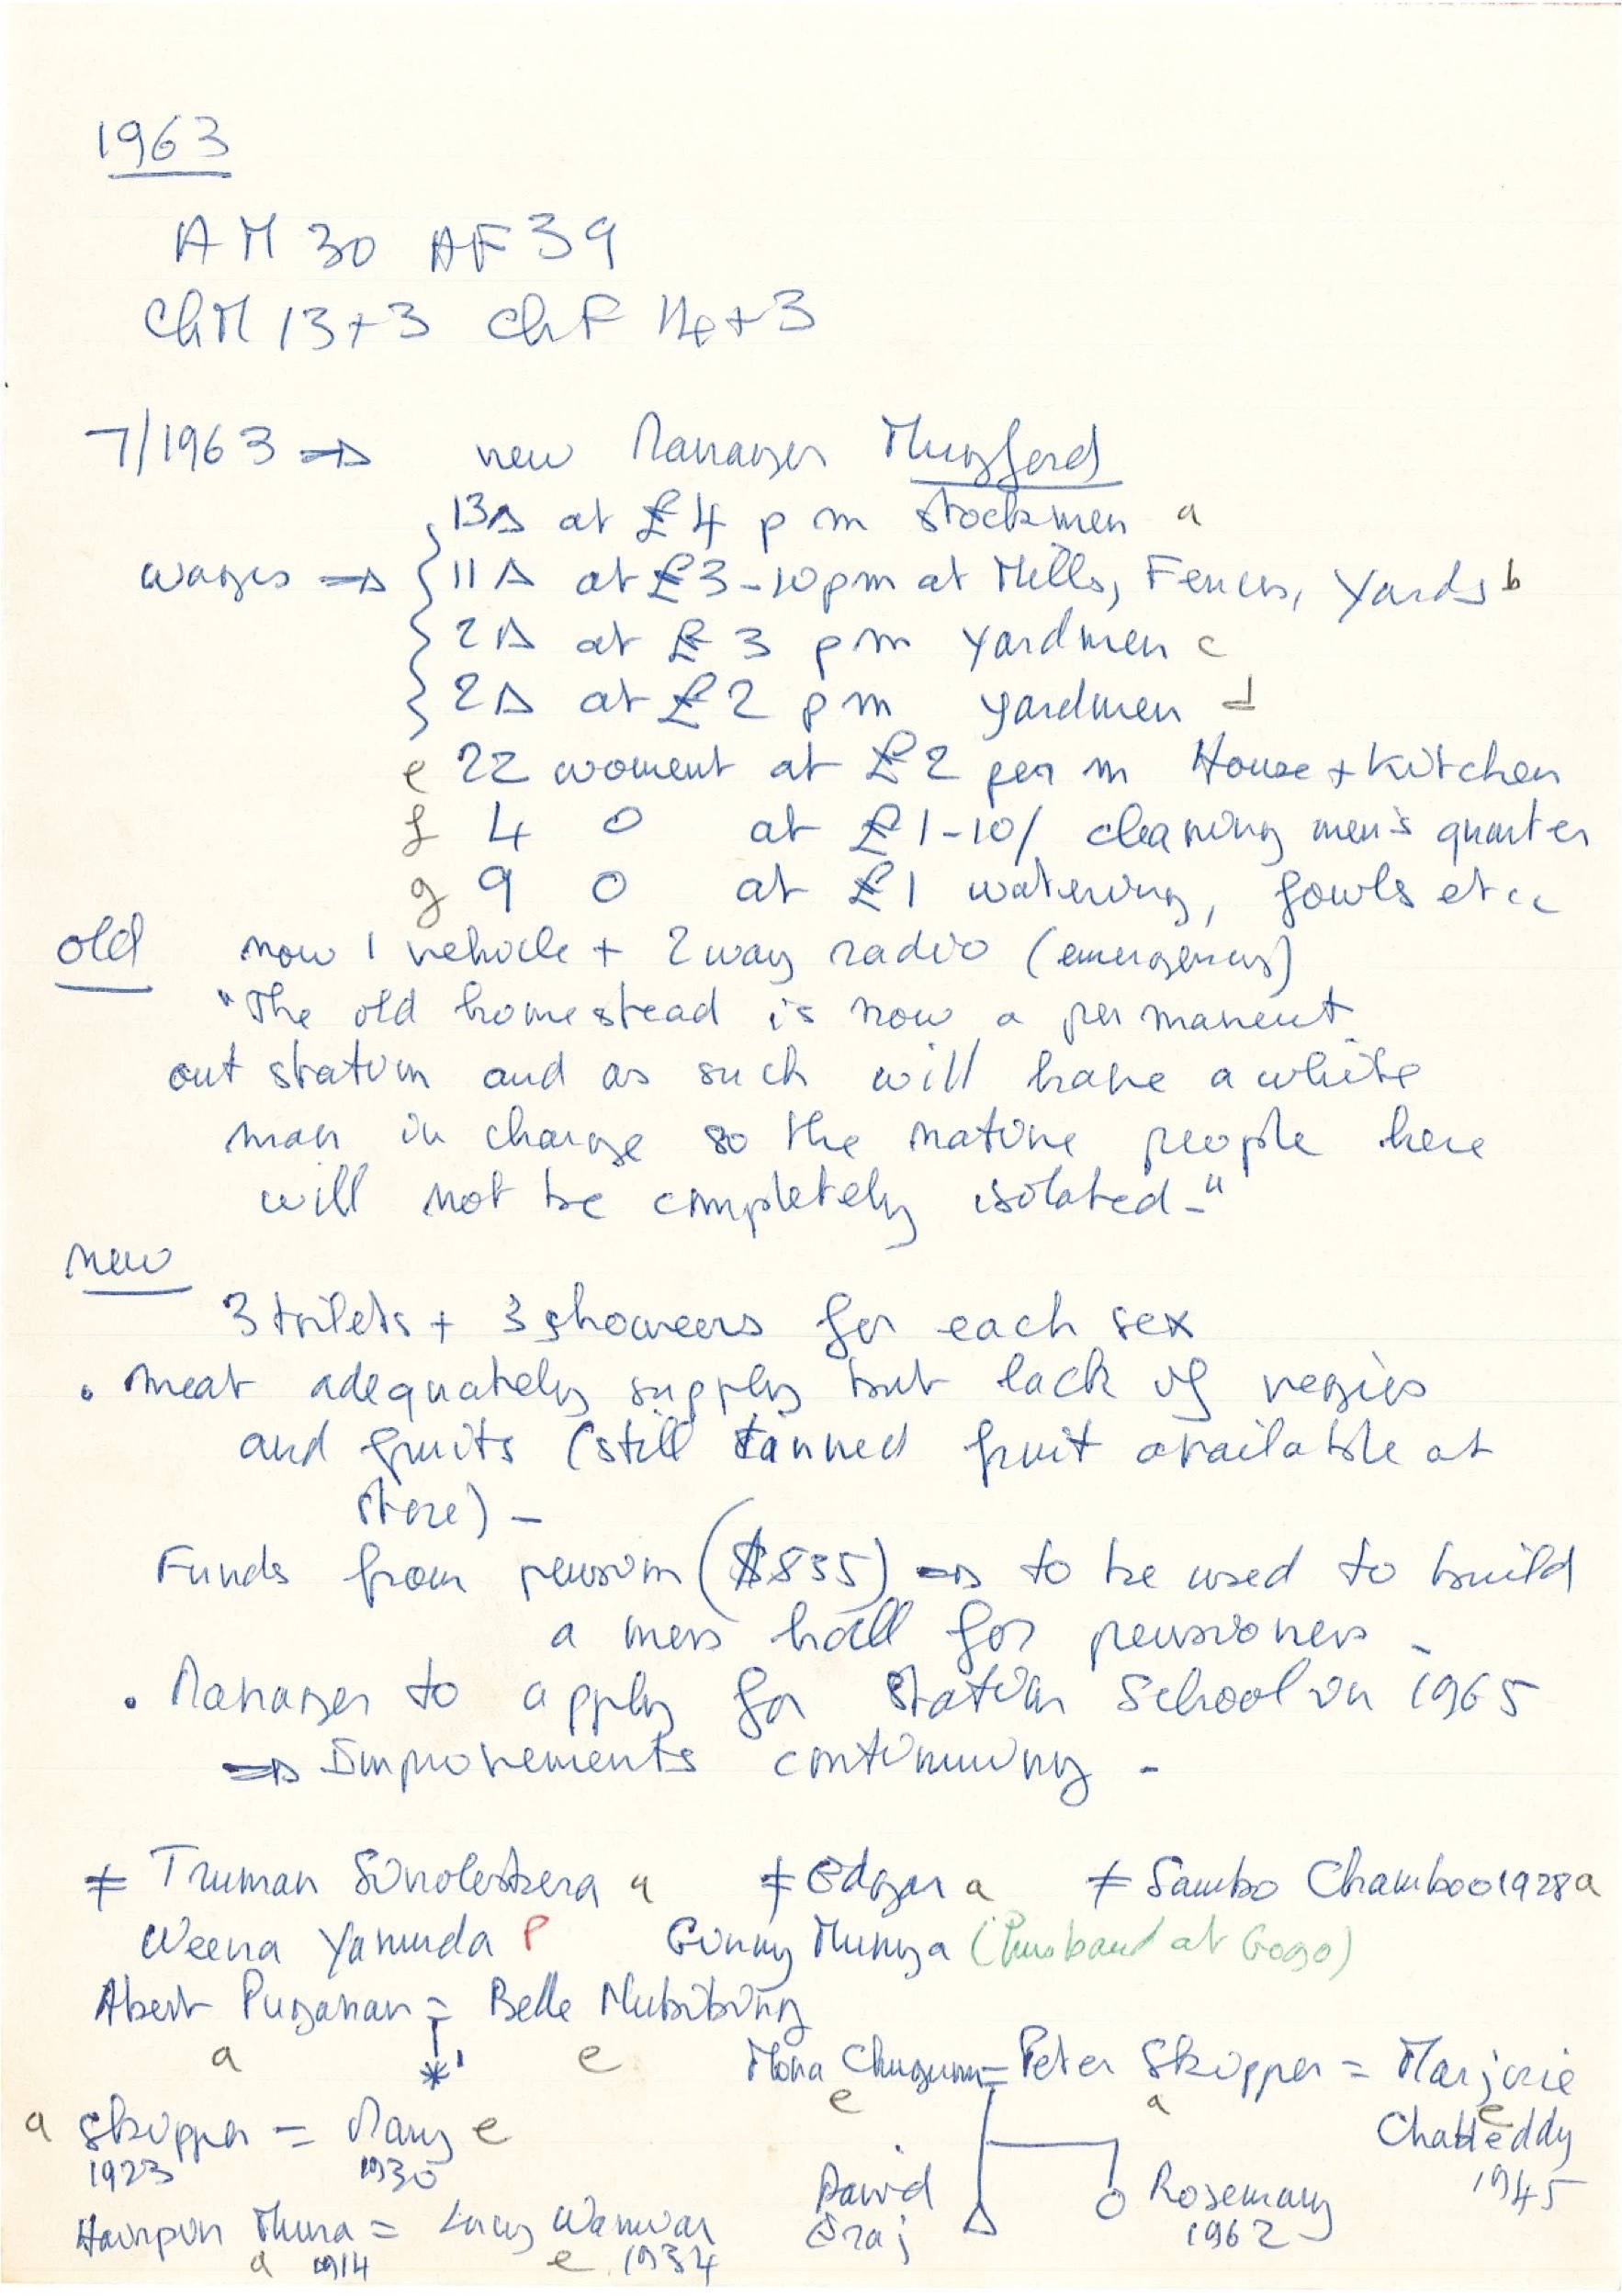 1963
AM 30 AF 39
ChM 13+3 ChF 14+3
7/1963 ⇒ new Manager Mugford
13Δ at £4 p m stockmen a
wages ⇒ 11 Δ at £3-10 pm at Mills, Fences, Yards b
2Δ at £3 pm yardmen c
2Δ at £2 pm yardmen d
e 22 woment at £2 per m House + Kitchen
f 4 O at £1-10/ cleaning men's quarter
g 9 O at £1 watering, fowls etc
old now 1 vehicle + 2 way radio (emergency)
"The old homestead is now a permanent
out station and as such will have a white
man in charge so the native people here
will not be completely isolated-"
new
3 toilets + 3 showers for each sex
• meat adequately supply but lack of vegies
and fruits (still tanned fruit available at
store) -
Funds from pension ($835) ⇒ to be used to build
a mess hall for pensioners -
• Manager to apply for Station School in 1965
⇒ Improvements continuing -
≠ Truman a ≠ Edgar a ≠ Sambo Chamboo 1928 a
Weena Yamunda P Ginny Munga (Husband at Gogo)
Abert Puganan = Belle
a *' e Mona = Peter Skipper = Marjorie
e a e
a Skipper = Mary e Chateddy
1923 1930 1945
David O Rosemary
Hairpin Thuna = Lucy Wanuvar Δ 1962
a 1914 e 1934